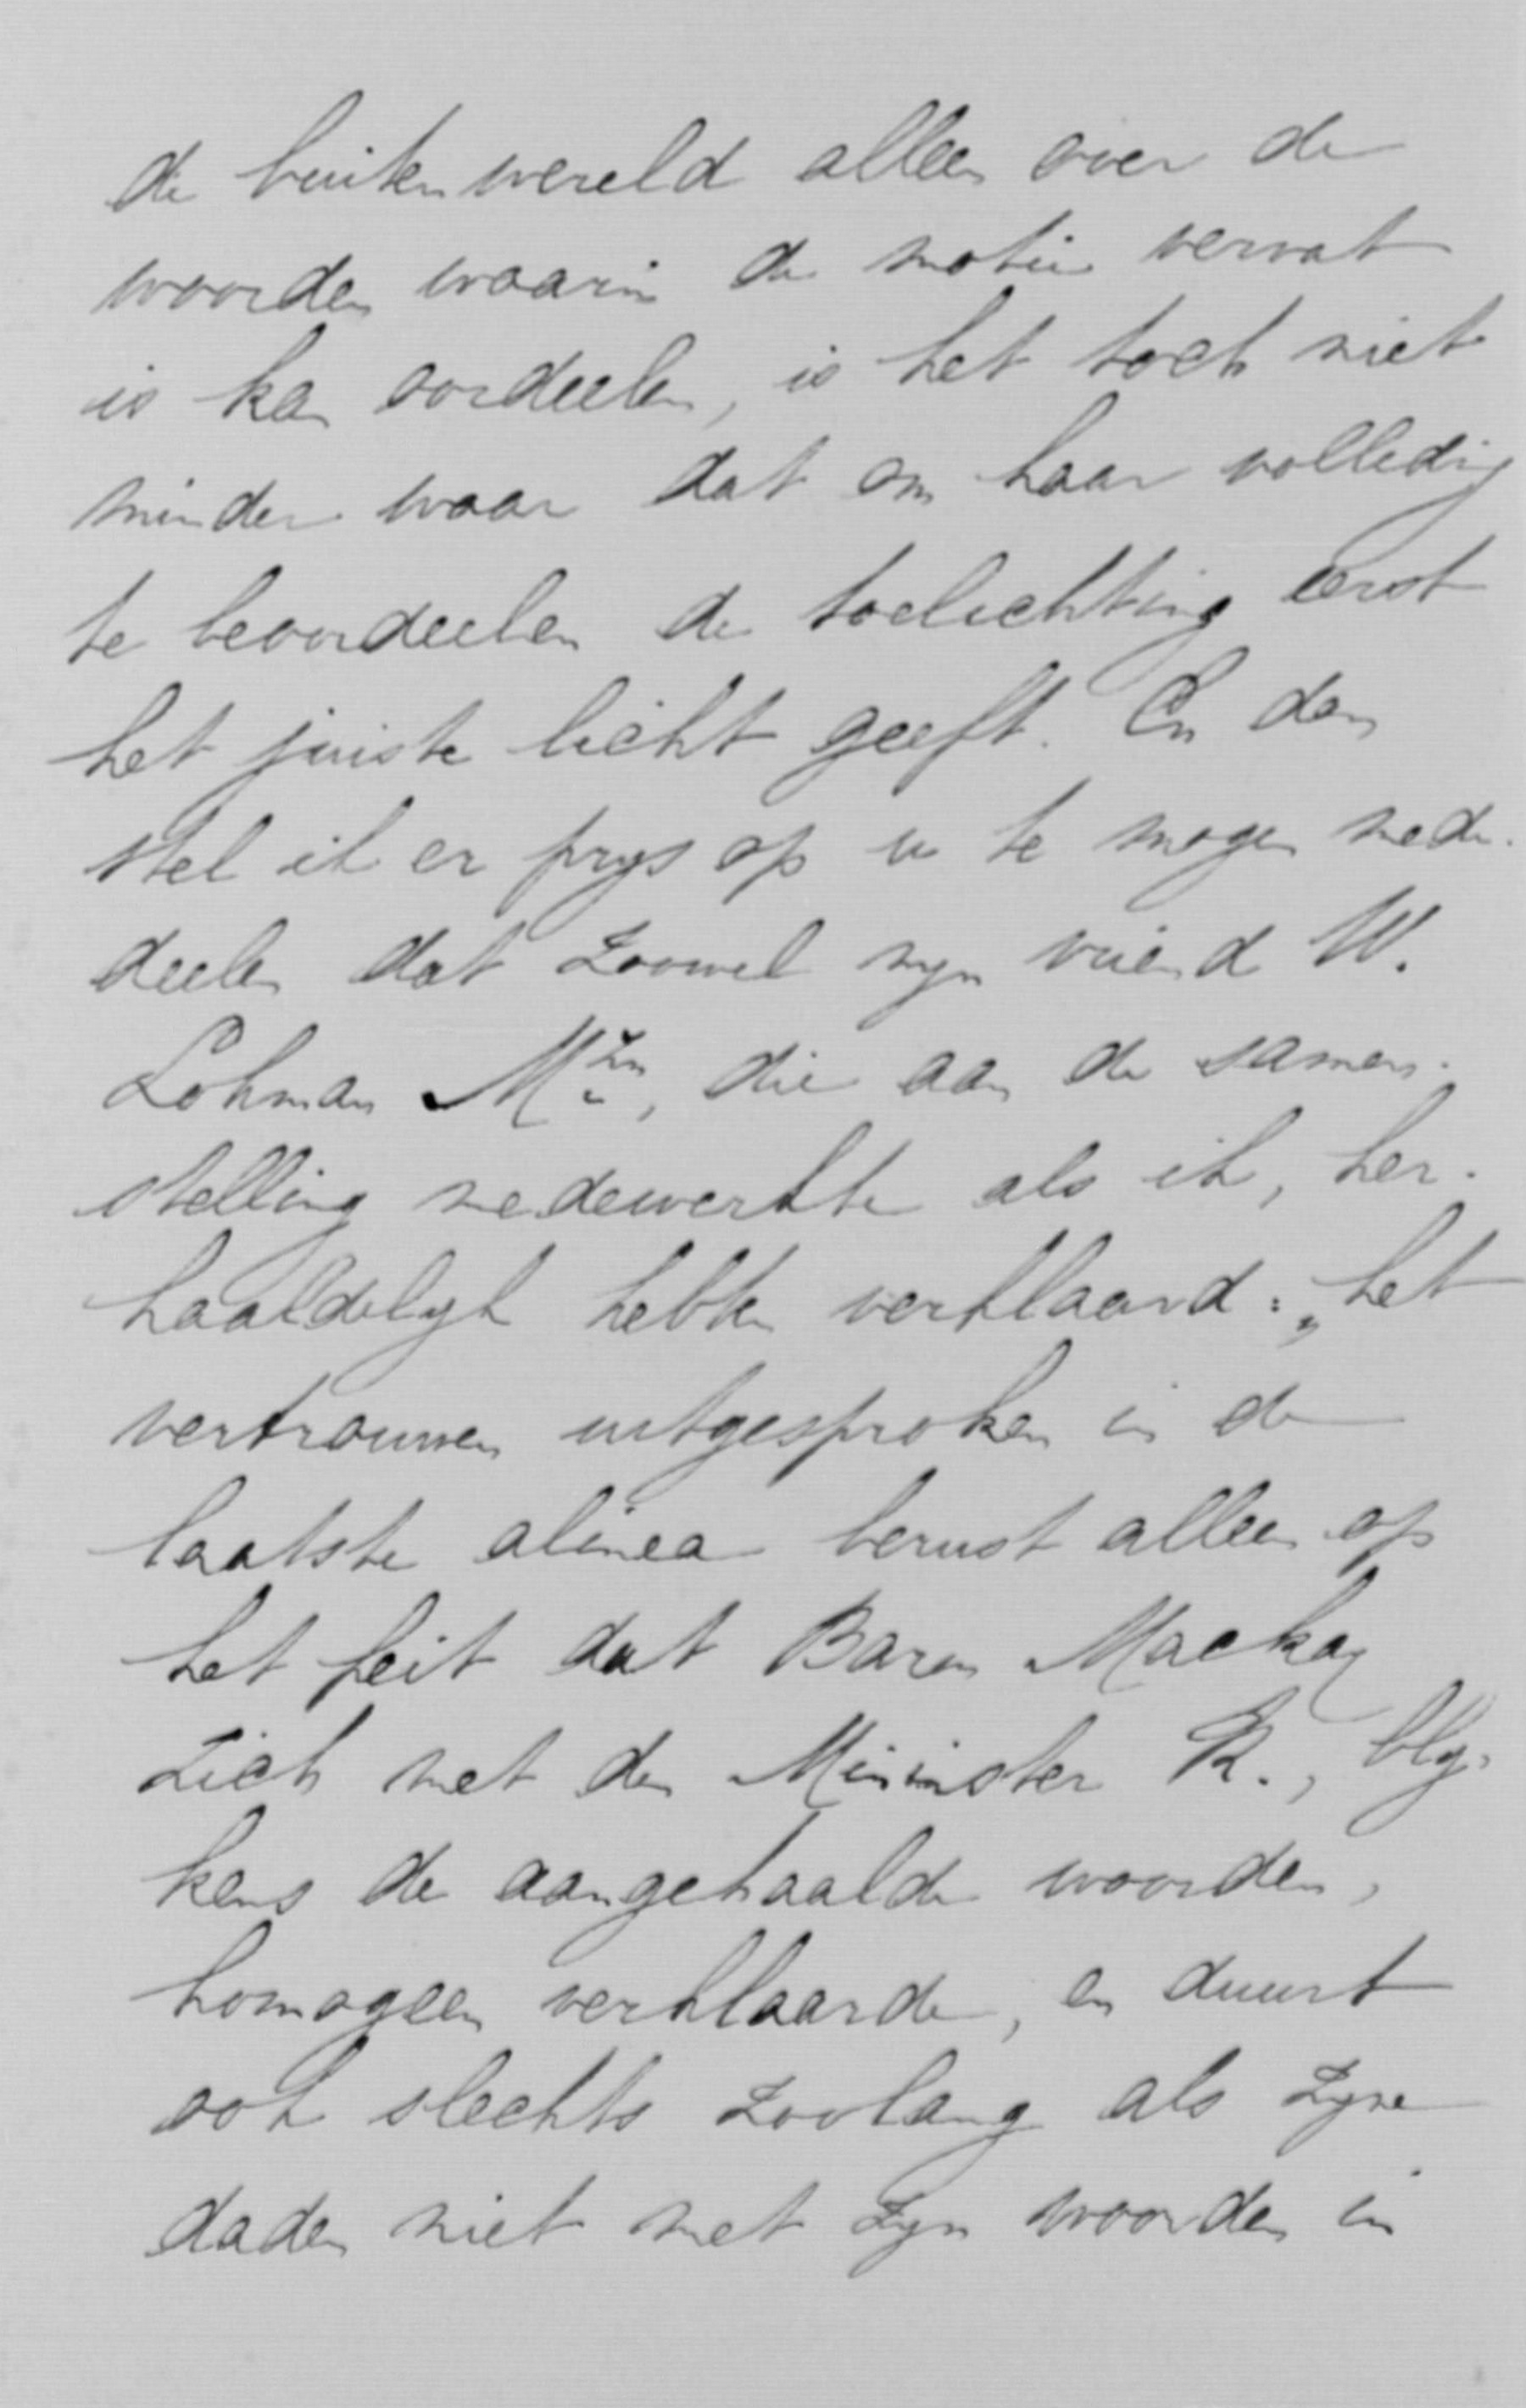 de buitenwereld alleen over de
woorden waarin de motie vervat
is kan oordeelen, is het toch niet
minder waar dat om haar volledig
te beoordeelen de toelichting eerst
het juiste licht geeft. En dan
stel ik er prys op u te mogen mede-
deelen dat zoowel myn vriend W.
Lohman Mzn, die aan de samen-
stelling medewerkte als ik, her-
haaldelyk hebben verklaard: „het
vertrouwen uitgesproken in de
laatste alinea berust alleen op
het feit dat Baron Mackay
zich met den Minister K., bly-
kens de aangehaalde woorden,
homogeen verklaarde, en duurt
ook slechts zoolang als zyne
daden niet met zyn woorden in